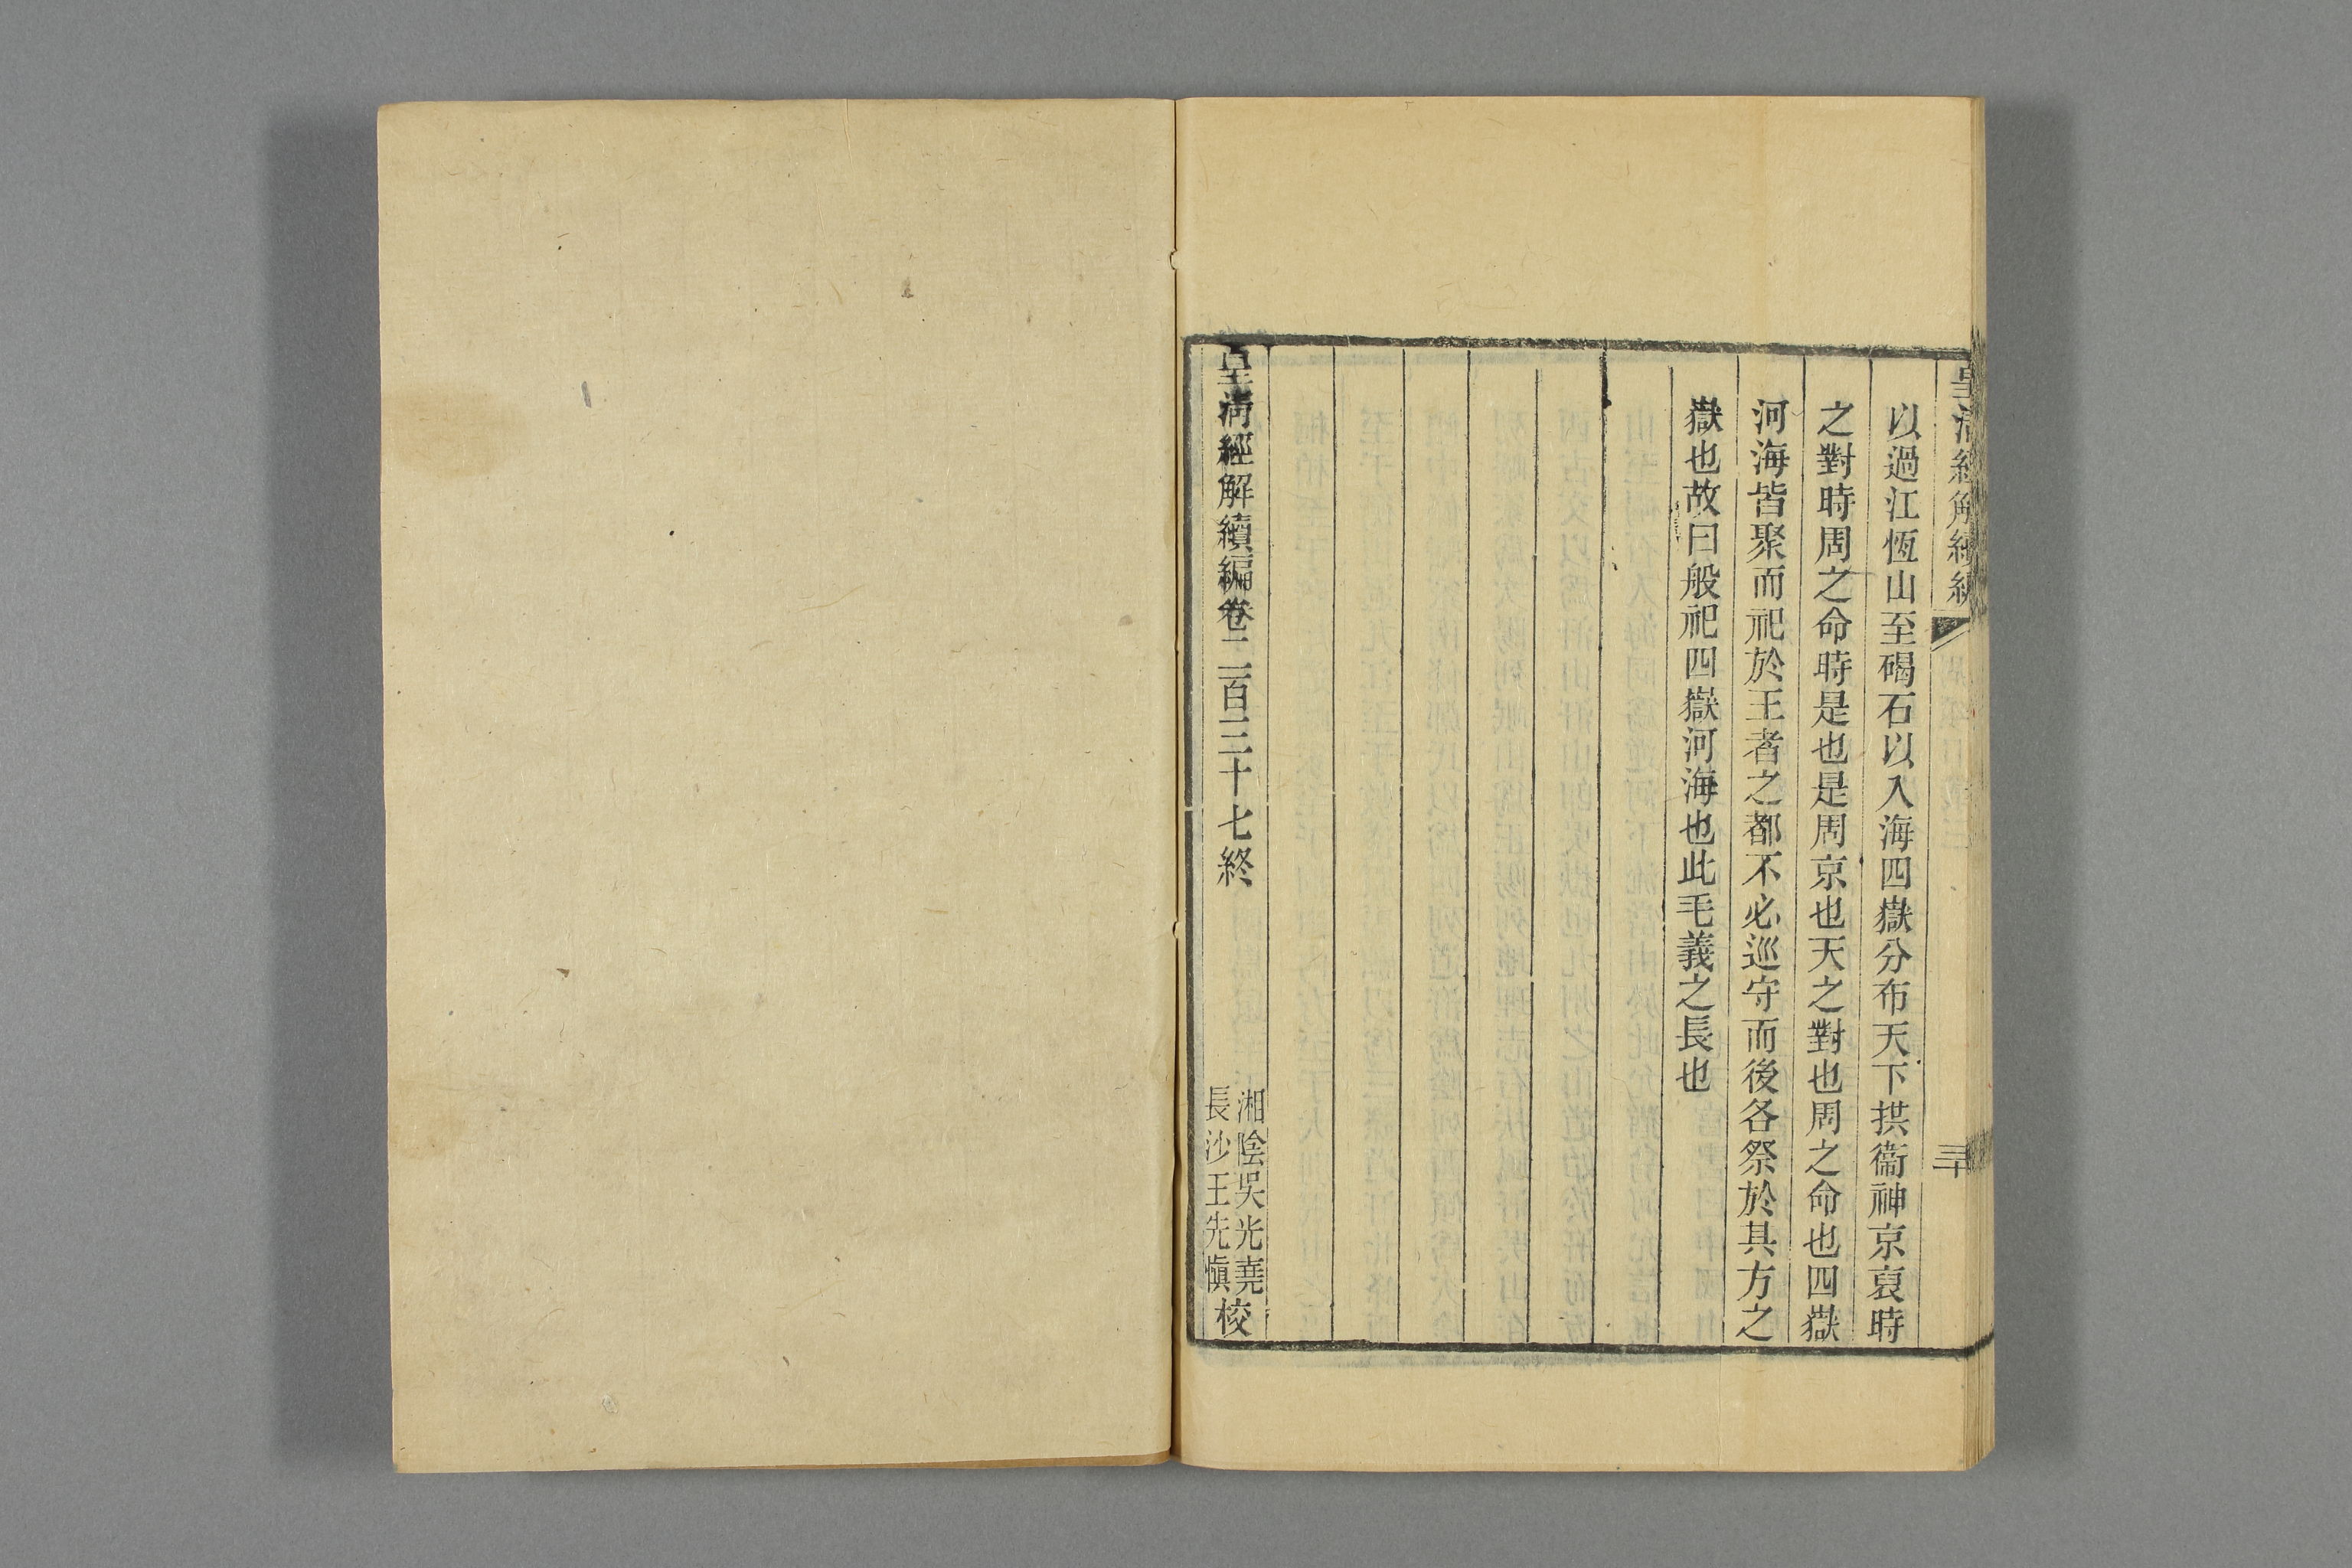 皇清經解續編
三十
以過江恆山至碣石以入海四嶽分布天下拱衞神京裒時
之對時周之命時是也是周京也天之對也周之命也四嶽
河海皆聚而祀於王者之都不必巡守而後各祭於其方之
嶽也故曰般祀四嶽河海也此毛義之長也
皇淸經解續編卷二百三十七終
湘陰吳光堯
長沙王先愼
校